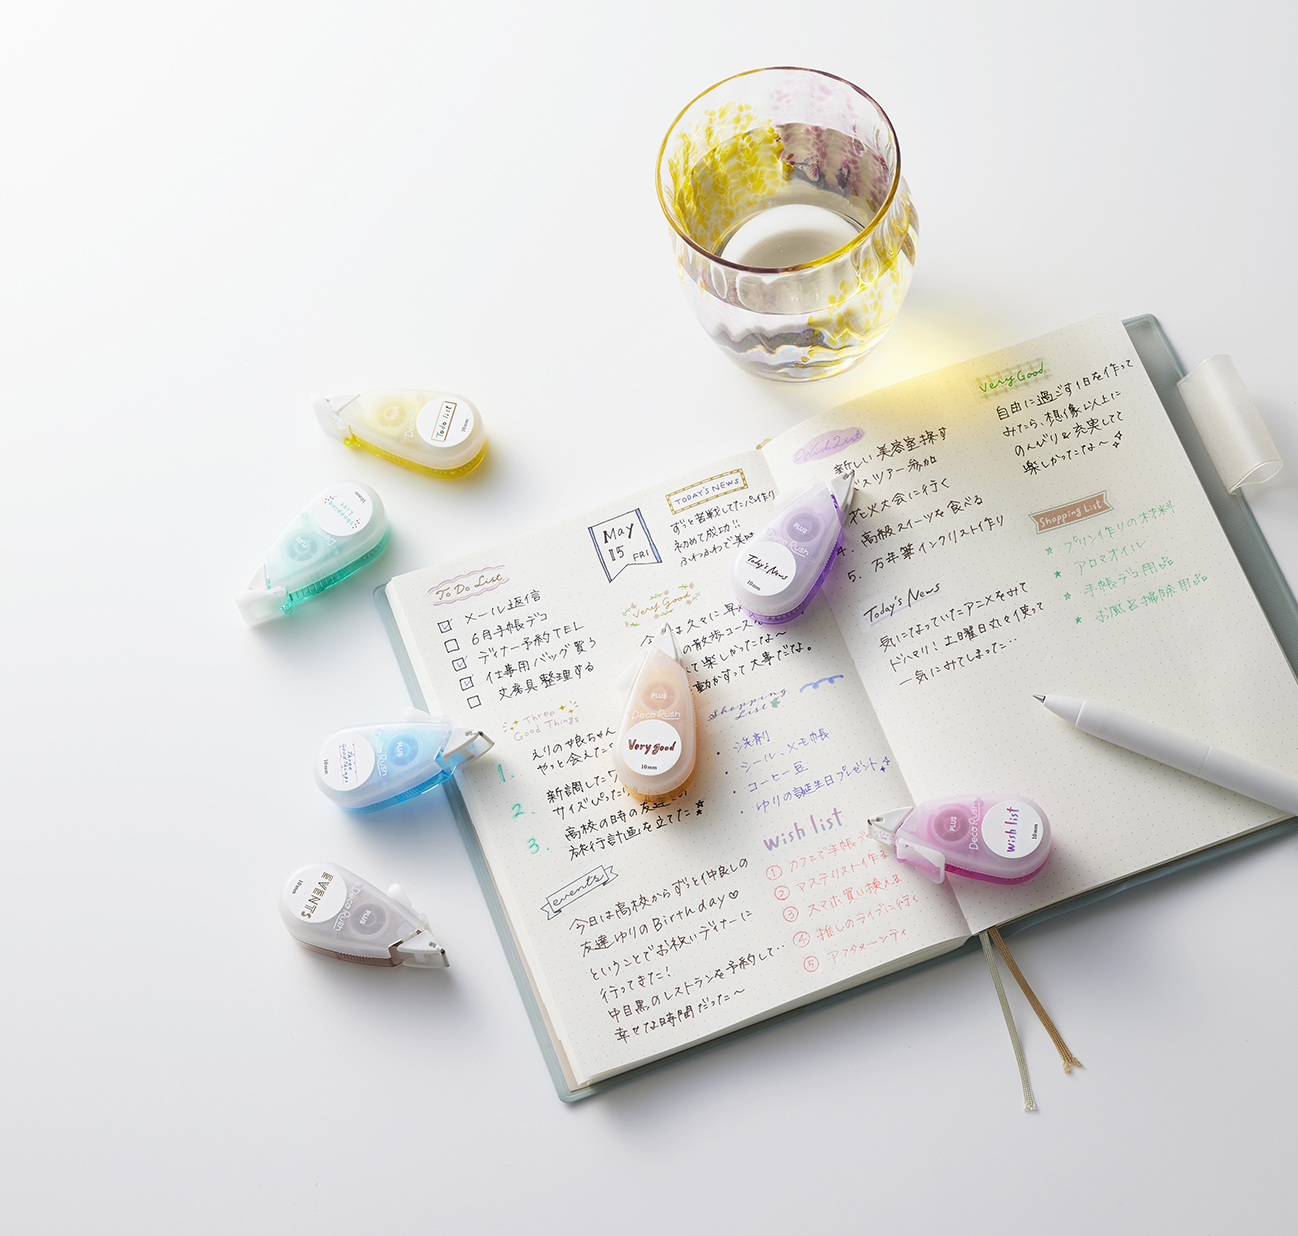 To Do List
メール返信
6月手帳デコ
ディナー予約TEL
仕事用バッグ買う
文房具整理する
May
15 FRI
TODAY'S NEWS
ずっと苦戦してたパイ作り
初めて成功!!
ふわふわで美味
Very Good
の散歩コース
て楽しかったな〜
動かすって大事だな。
Three
Good Things
1. えりの娘ちゃん
やっと会えた
2. 新調した
サイズぴったり
3. 高校の時の友達
旅行計画を立てた★
Shopping
List
・洗剤
・シール、メモ帳
・コーヒー豆
・ゆりの誕生日プレゼント
events
今日は高校からずっと仲良しの
友達ゆりのBirthday♡
ということでお祝いディナーに
行ってきた!
中目黒のレストランを予約して‥
幸せな時間だった〜
wish list
① カフェで手帳
② マステリスト作る
③ スマホ買い換える
④ 推しのライブに行く
⑤ アフタヌーンティ
Wish List
新しい美容室探す
バスツアー参加
花火大会に行く
4. 高級スイーツを食べる
5. 万年筆インクリスト作り
Today's News
気になっていたアニメをみて
ドハマリ!土曜日丸々使って
一気にみてしまった…
Very Good
自由に過ごす1日を作って
みたら、想像以上に
のんびり&充実してて
楽しかったな〜
Shopping List
プリン作りの材料
★ アロマオイル
★ 手帳デコ用品
★ お風呂掃除用品
Todo list
10mm
Deco Rush
PLUS
Shopping
List
10mm
Deco Rush
PLUS
Three
Good Things
10mm
PLUS
Deco Rush
EVENTS
10mm
PLUS
Deco Rush
PLUS
Deco Rush
Very good
10mm
PLUS
Deco Rush
Today's News
10mm
PLUS
Deco Rush
wish list
10mm